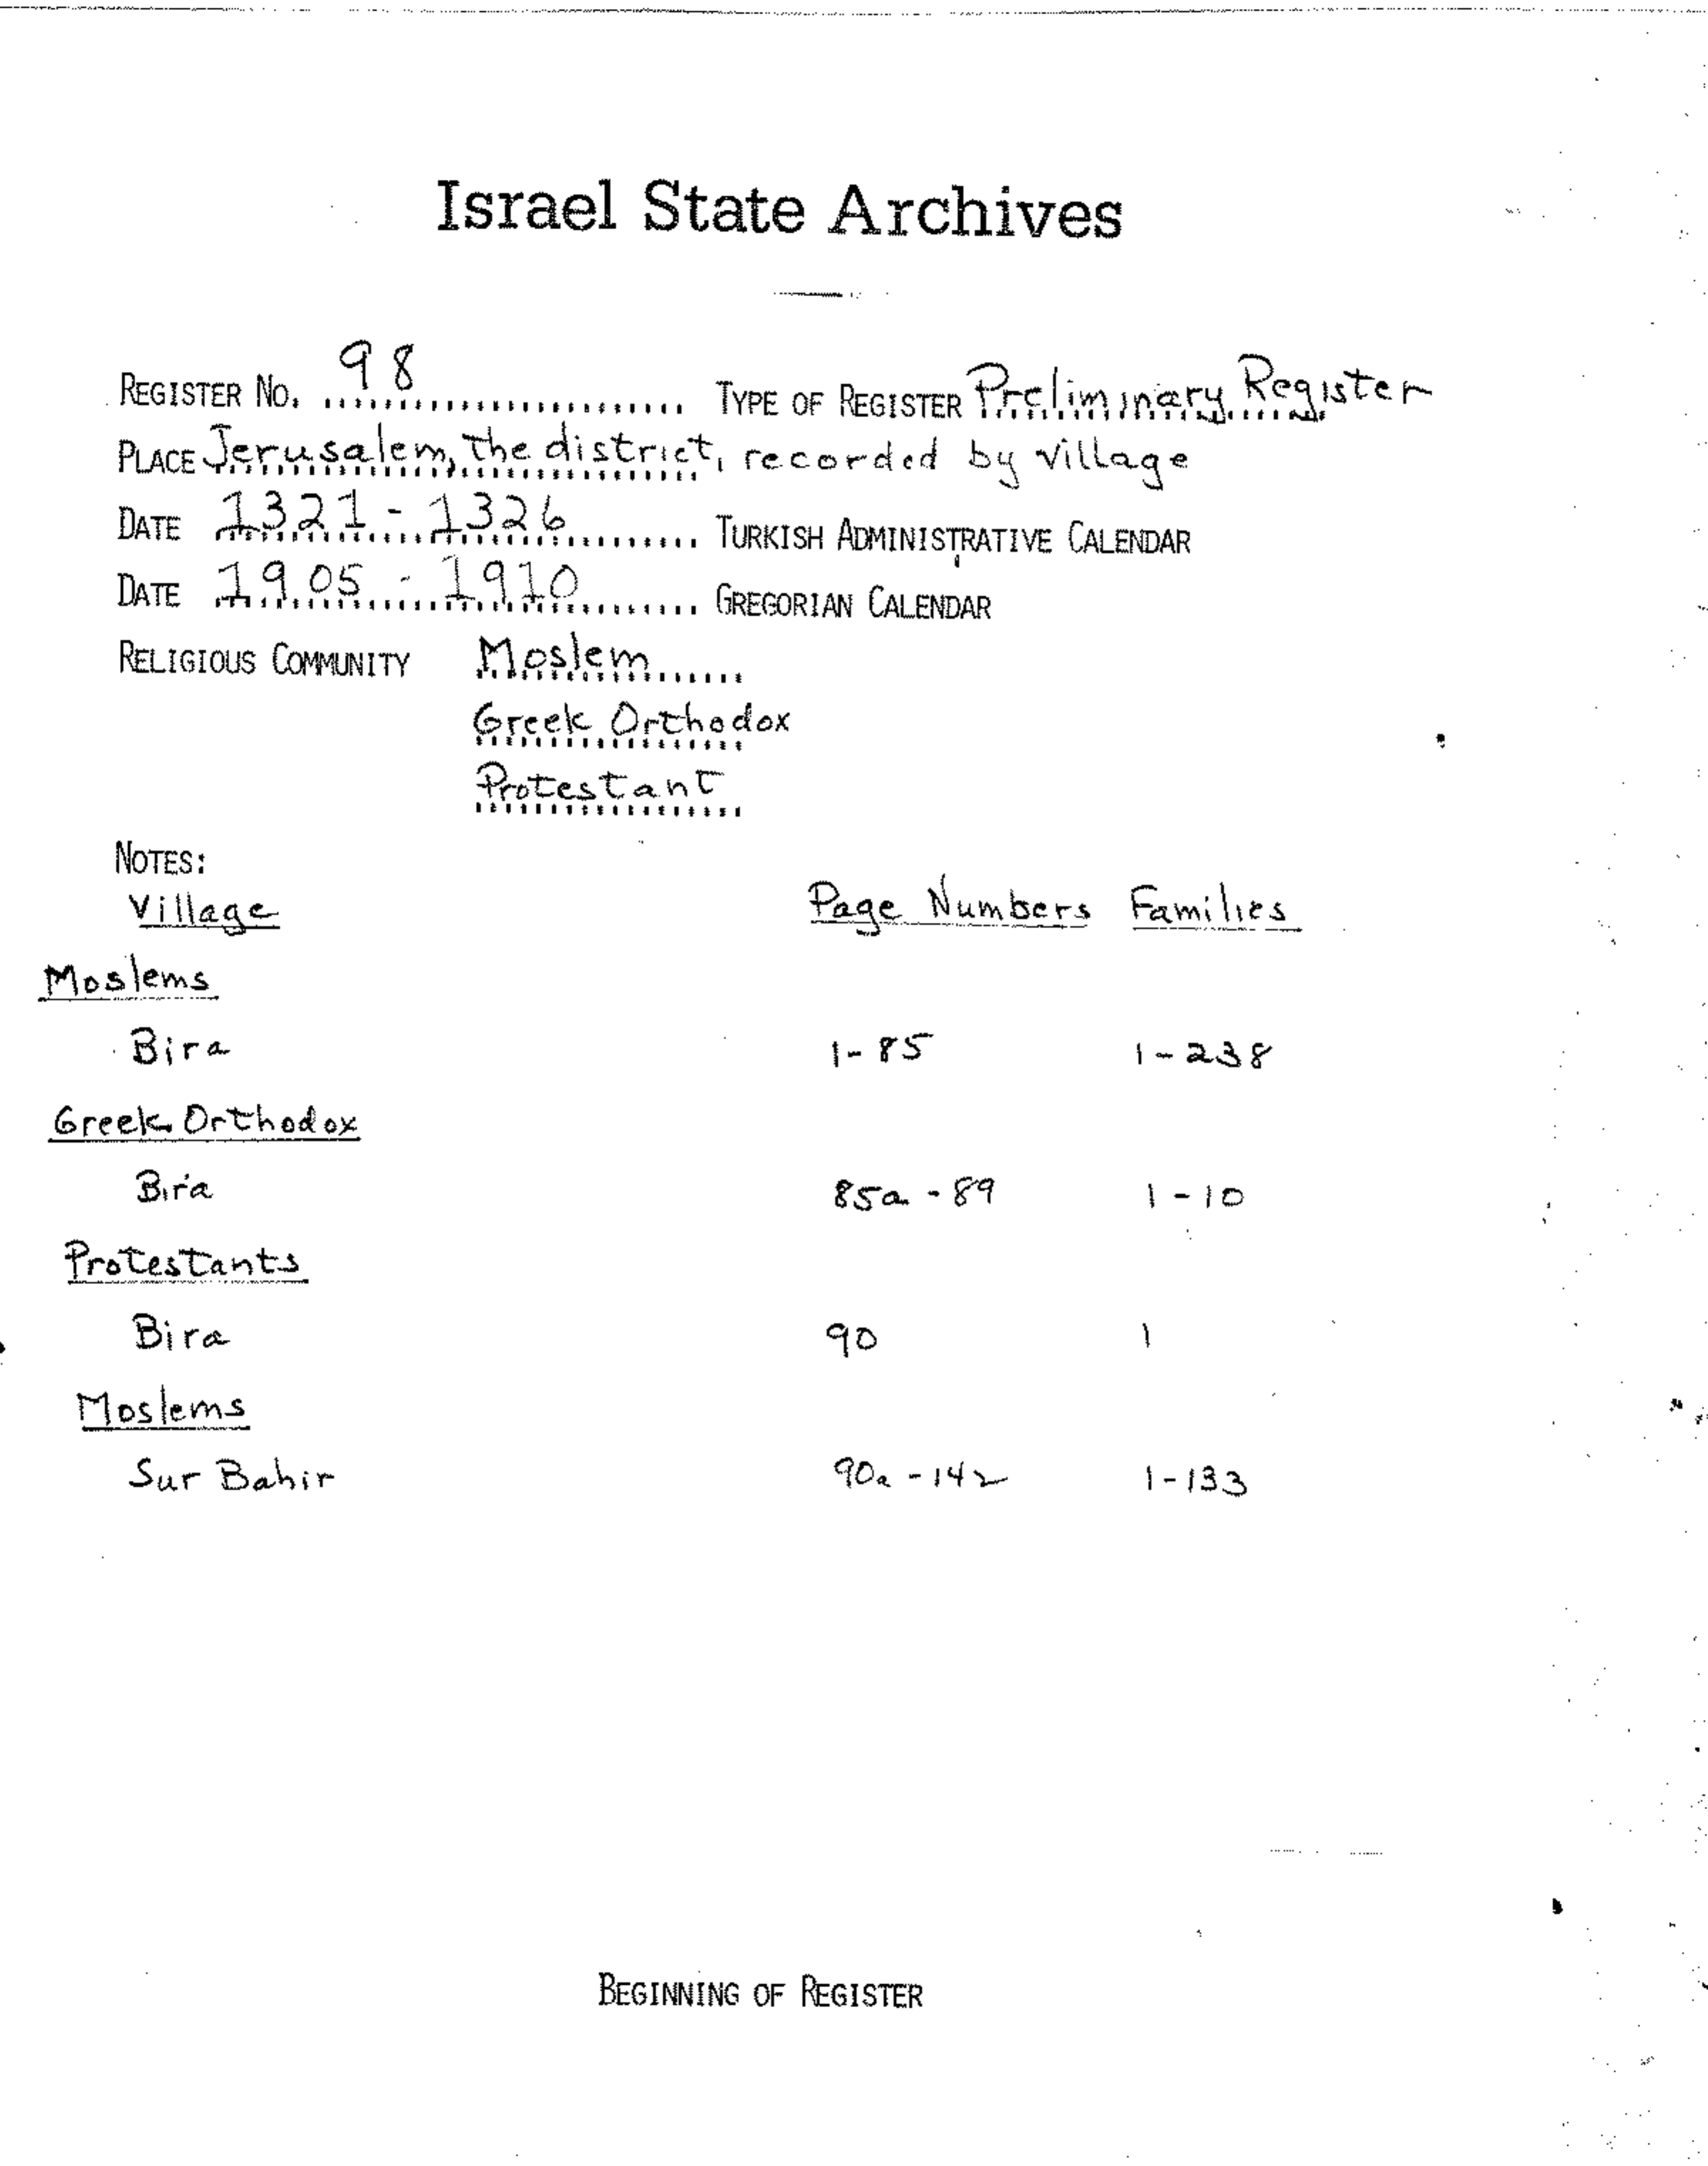 Israel State Archives
REGISTER NO. 98 TYPE OF REGISTER Preliminary Register
PLACE Jerusalem, the district, recorded by village
DATE 1321 - 1326 TURKISH ADMINISTRATIVE CALENDAR
DATE 1905 - 1910 GREGORIAN CALENDAR
RELIGIOUS COMMUNITY Moslem
Greek Orthodox
Protestant
NOTES:
Village Page Numbers Families
Moslems
Bira 1-85 1-238
Greek Orthodox
Bira 85a - 89 1 - 10
Protestants
Bira 90 1
Moslems
Sur Bahir 90a - 142 1-133
BEGINNING OF REGISTER